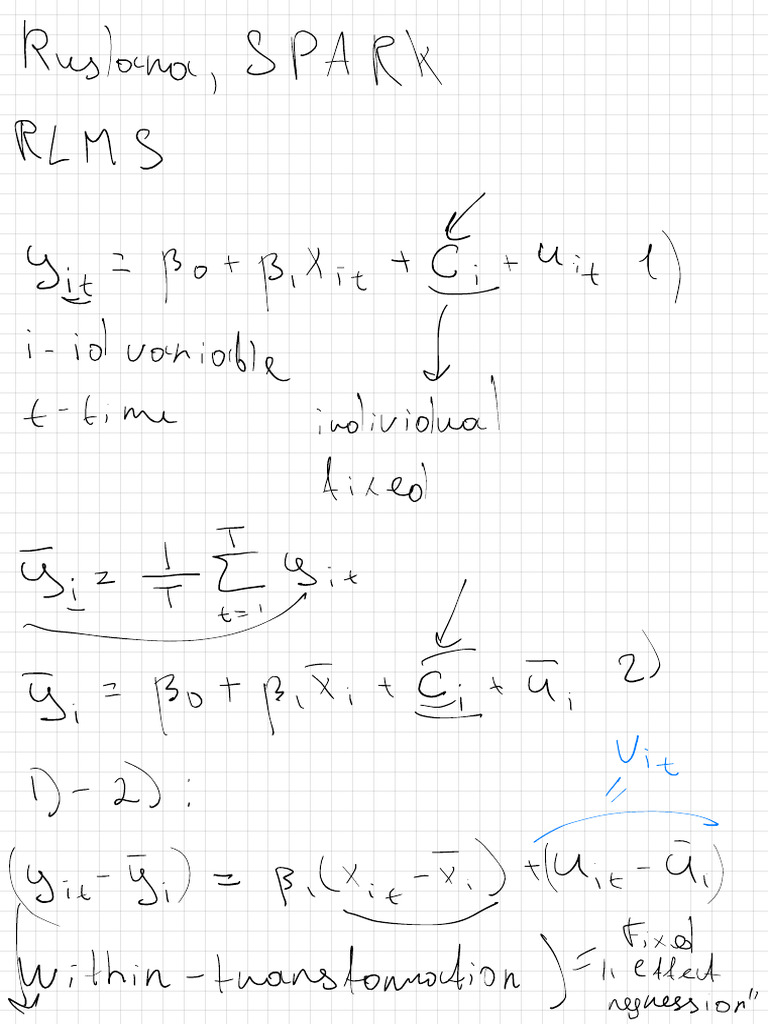 Ruslana, SPARK
RLMS
y_it = β0 + β1 x_it + C_i + u_it 1)
i - id variable
t - time
individual
fixed
ȳ_i = 1/T Σ_{t=1}^{T} y_it
ȳ_i = β0 + β1 x̄_i + C̄_i + ū_i 2)
1) - 2) :
v_it
=
(y_it - ȳ_i) = β1 (x_it - x̄_i) + (u_it - ū_i)
within-transformation) = Fixed
effect
regression"